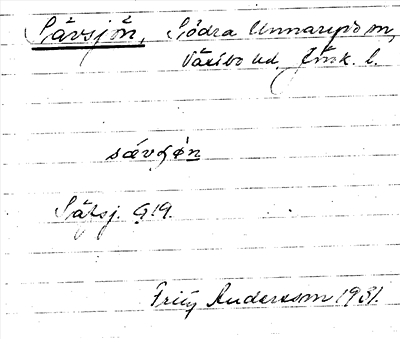 Sävsjön, Södra Unnaryd sn,
Västbo hd, Jönk. l.
sávʃø̀n
Säfsj. G 19.
Fritz Andersson 1931.